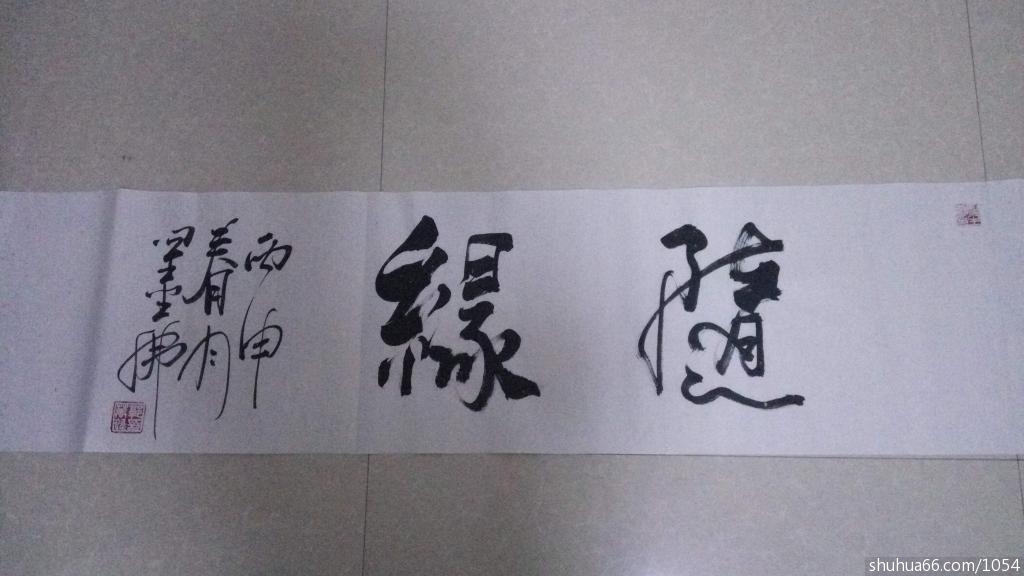 隨緣
丙申
春月
墨佛
shuhua66.com/1054